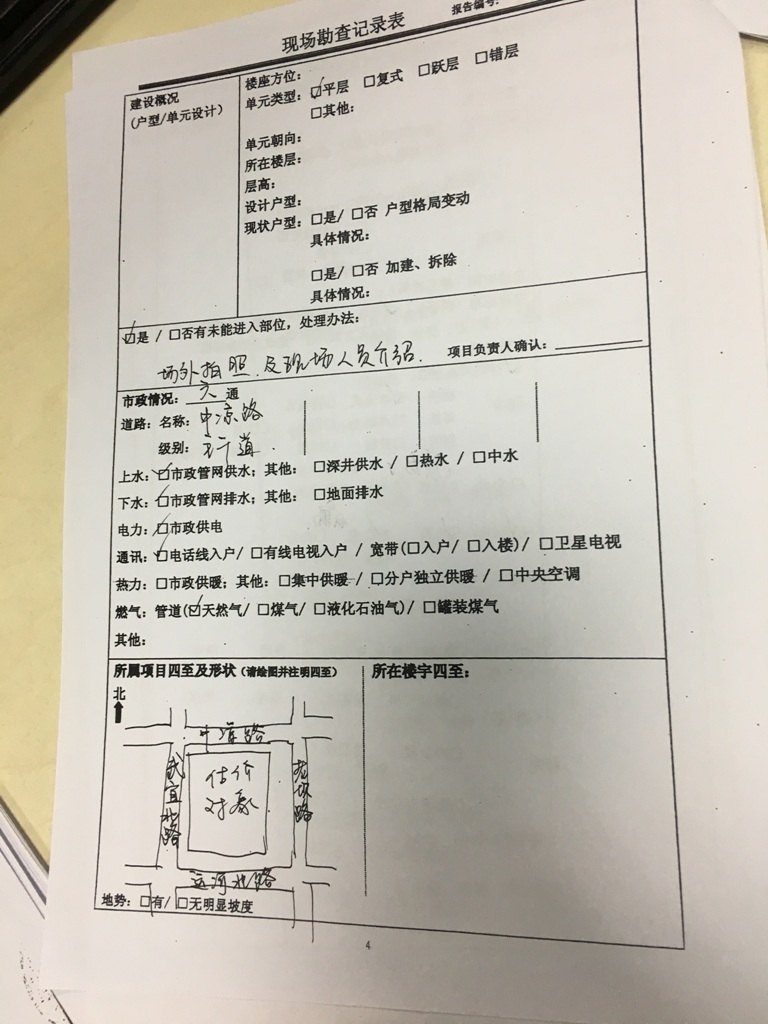 现场勘查记录表
报告编号:
建设概况
(户型/单元设计)
楼座方位:
单元类型: ☑平层 □复式 □跃层 □错层
□其他:
单元朝向:
所在楼层:
层高:
设计户型:
现状户型: □是/ □否 户型格局变动
具体情况:
□是/ □否 加建、拆除
具体情况:
☑是 / □否有未能进入部位,处理办法:
场外拍照及现场人员介绍.
项目负责人确认:
市政情况: 六 通
道路: 名称: 中凉路
级别:
上水: ☑市政管网供水; 其他: □深井供水 / □热水 / □中水
下水: ☑市政管网排水; 其他: □地面排水
电力: ☑市政供电
通讯: ☑电话线入户/ □有线电视入户 / 宽带(□入户/ □入楼)/ □卫星电视
热力: □市政供暖; 其他: □集中供暖 / □分户独立供暖 / □中央空调
燃气: 管道(☑天然气/ □煤气/ □液化石油气)/ □罐装煤气
其他:
所属项目四至及形状(请绘图并注明四至)
所在楼宇四至:
北
武宜北路
估价
对象
运河北路
地势: □有/ □无明显坡度
4